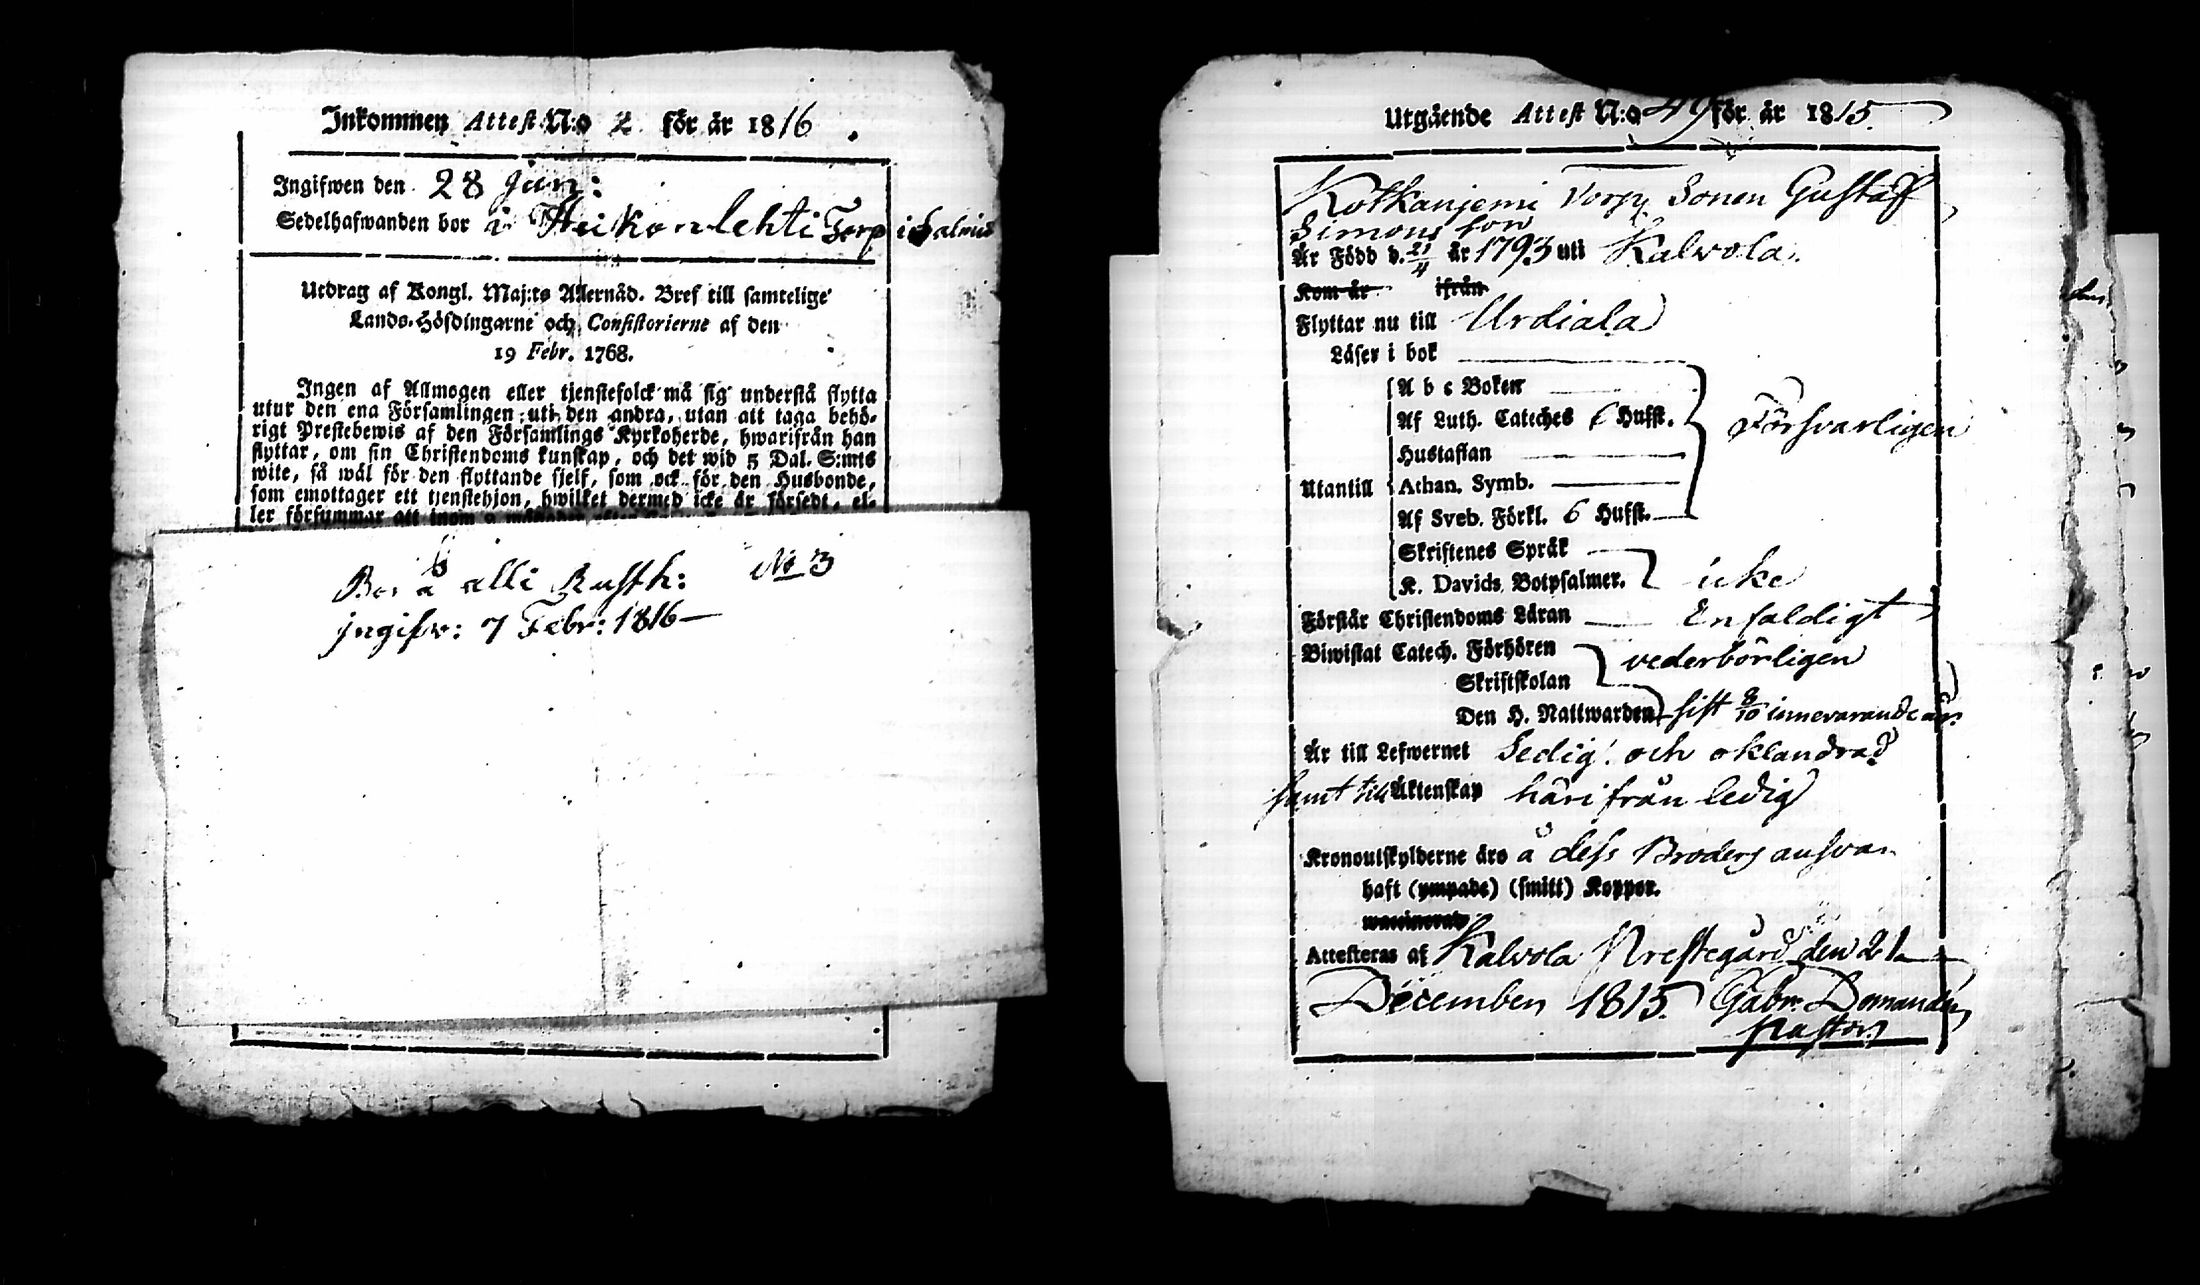 Inkommen Attest N:o 2 för år 1816.
Ingifwen den 28 Jun:
Sedelhafwanden bor i Heikonlehti Torp i Salmis
Utdrag af Kongl. Maj:ts Allernåd. Bref till samtelige
Lands-Höfdingarne och Consistorierne af den
19 Febr. 1768.
Ingen af Allmogen eller tjenstefolck må sig understå flytta
utur den ena Församlingen uti den andra, utan att taga behö-
rigt Prestebewis af den Församlings Kyrkoherde, hwarifrån han
flyttar, om sin Christendoms kunskap, och det wid 5 Dal. S:mts
wite, så wäl för den flyttande sjelf, som ock för den Husbonde,
som emottager ett tjenstehjon, hwilket dermed icke är försedt, el-
ler försummar att inom
Bor å alli Rusth: No 3
ingifv: 7 Febr: 1816
Utgående Attest N:o 49 för år 1815.
Kotkanjemi Torp Sonen Gustaf
Simons son
Är Född d. 21/4 år 1793 uti Kalvola.
Kom år ifrån
Flyttar nu till Urdiala
Läser i bok
A b c Boken
Af Luth. Cateches 6 Hufst. Försvarligen
Hustaflan
Utantill Athan. Symb.
Af Sveb. Förkl. 6 Hufst.
Skriftenes Språk
K. Davids Botpsalmer. icke
Förstår Christendoms Läran Enfaldigt
Biwistat Catech. Förhören vederbörligen
Skriftskolan
Den H. Nattwarden sist 8/10 innevarande år.
Är till Lefwernet Sedig och oklandrad
samt till Äktenskap härifrån ledig
Kronoutskylderne äro å dess Broders answar
haft (ympade) (smitt) Koppor.
waccinerad
Attesteras af Kalvola Prestegård den 21
December 1815. Gabr. Domander
Pastor